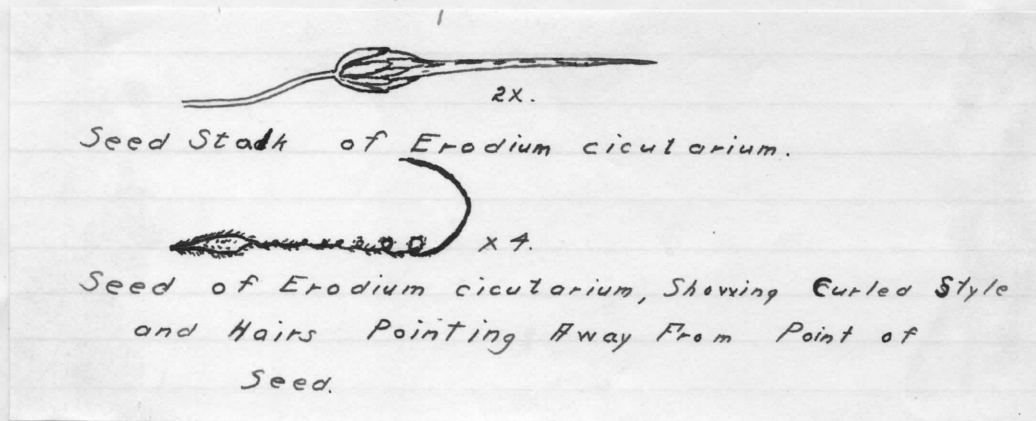 2X.
Seed Stalk of Erodium cicutarium.
x 4.
Seed of Erodium cicutarium, Showing Curled Style
and Hairs Pointing Away From Point of
Seed.